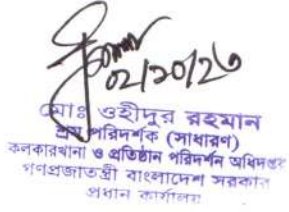 ০২/১০/২৩
মোঃ ওহীদুর রহমান
শ্রম পরিদর্শক (সাধারণ)
কলকারখানা ও প্রতিষ্ঠান পরিদর্শন অধিদপ্তর
গণপ্রজাতন্ত্রী বাংলাদেশ সরকার
প্রধান কার্যালয়